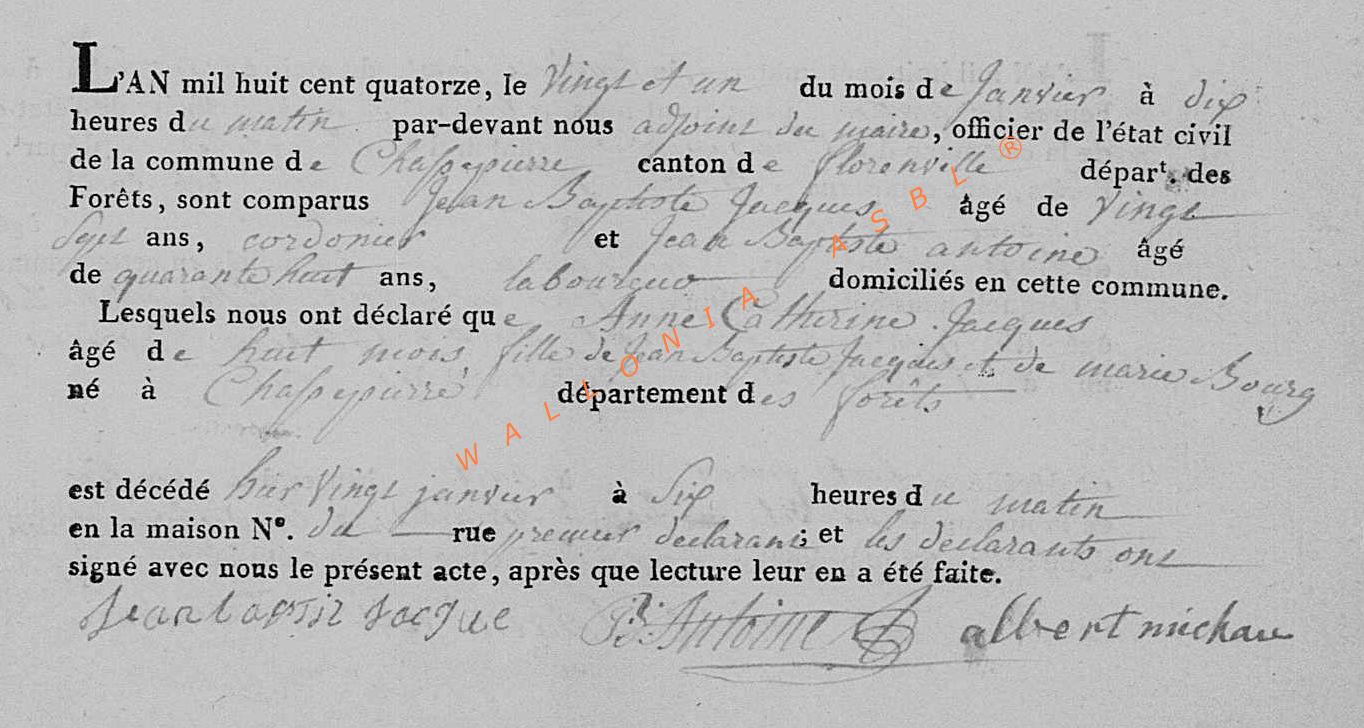 L'AN mil huit cent quatorze, le Vingt et un du mois de Janvier à dix
heures du matin par-devant nous adjoint du maire, officier de l'état civil
de la commune de Chassepierre canton de florenville départ. des
Forêts, sont comparus Jean Baptiste Jacques âgé de vingt
Sept ans, cordonier et Jean Baptiste antoine âgé
de quarante huit ans, laboureur domiciliés en cette commune.
Lesquels nous ont déclaré que Anne Catherine Jacques
âgé de huit mois fille de Jean Baptiste Jacques et de marie Bourg
né à Chassepierre département des forêts
est décédé hier Vingt janvier à Six heures du matin
en la maison N°. du rue premier declarant; et les declarants ont
signé avec nous le présent acte, après que lecture leur en a été faite.
Jean baptiste Jacque JB Antoine albert michau
WALLONIA ASBL ®